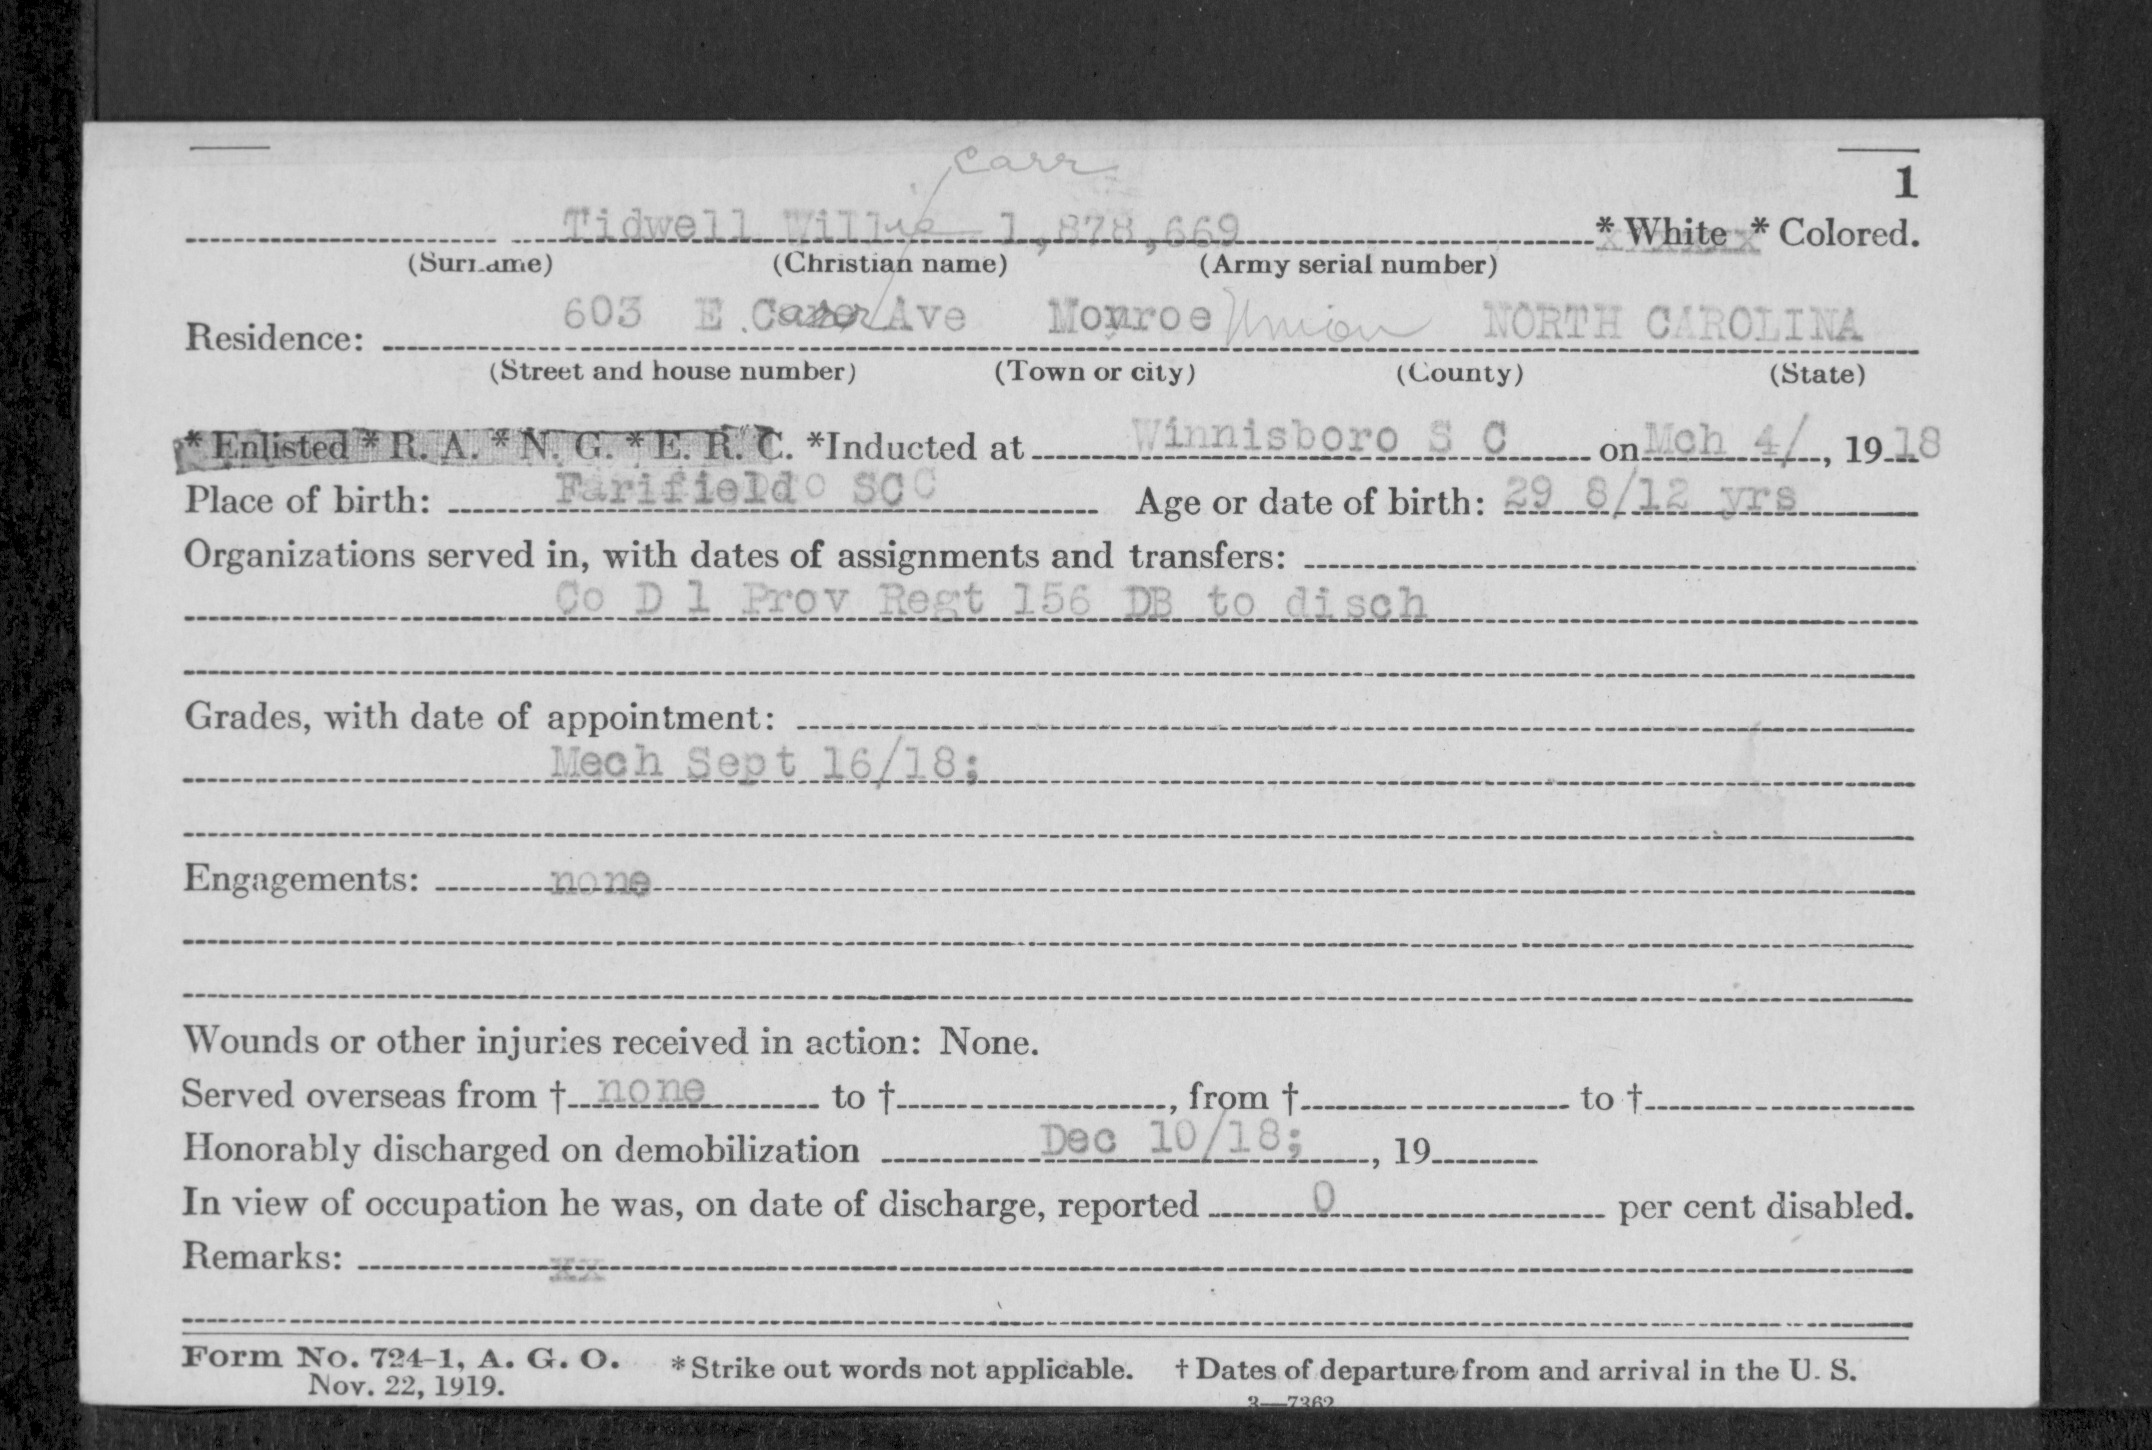 Carr
1
Tidwell Willie 1,878,669 * White * Colored.
(Surname) (Christian name) (Army serial number)
603 E. Carr Ave Monroe Union NORTH CAROLINA
Residence:
(Street and house number) (Town or city) (County) (State)
* Enlisted * R. A. * N. G. * E. R. C. *Inducted at Winnisboro S C on Mch 4/, 1918
Place of birth: Farifield SC Age or date of birth: 29 8/12 yrs
Organizations served in, with dates of assignments and transfers:
Co D 1 Prov Regt 156 DB to disch
Grades, with date of appointment:
Mech Sept 16/18;
Engagements: none
Wounds or other injuries received in action: None.
Served overseas from † none to †, from † to †
Honorably discharged on demobilization Dec 10/18; , 19
In view of occupation he was, on date of discharge, reported 0 per cent disabled.
Remarks: xx
Form No. 724-1, A. G. O. *Strike out words not applicable. † Dates of departure from and arrival in the U. S.
Nov. 22, 1919.
3—7362